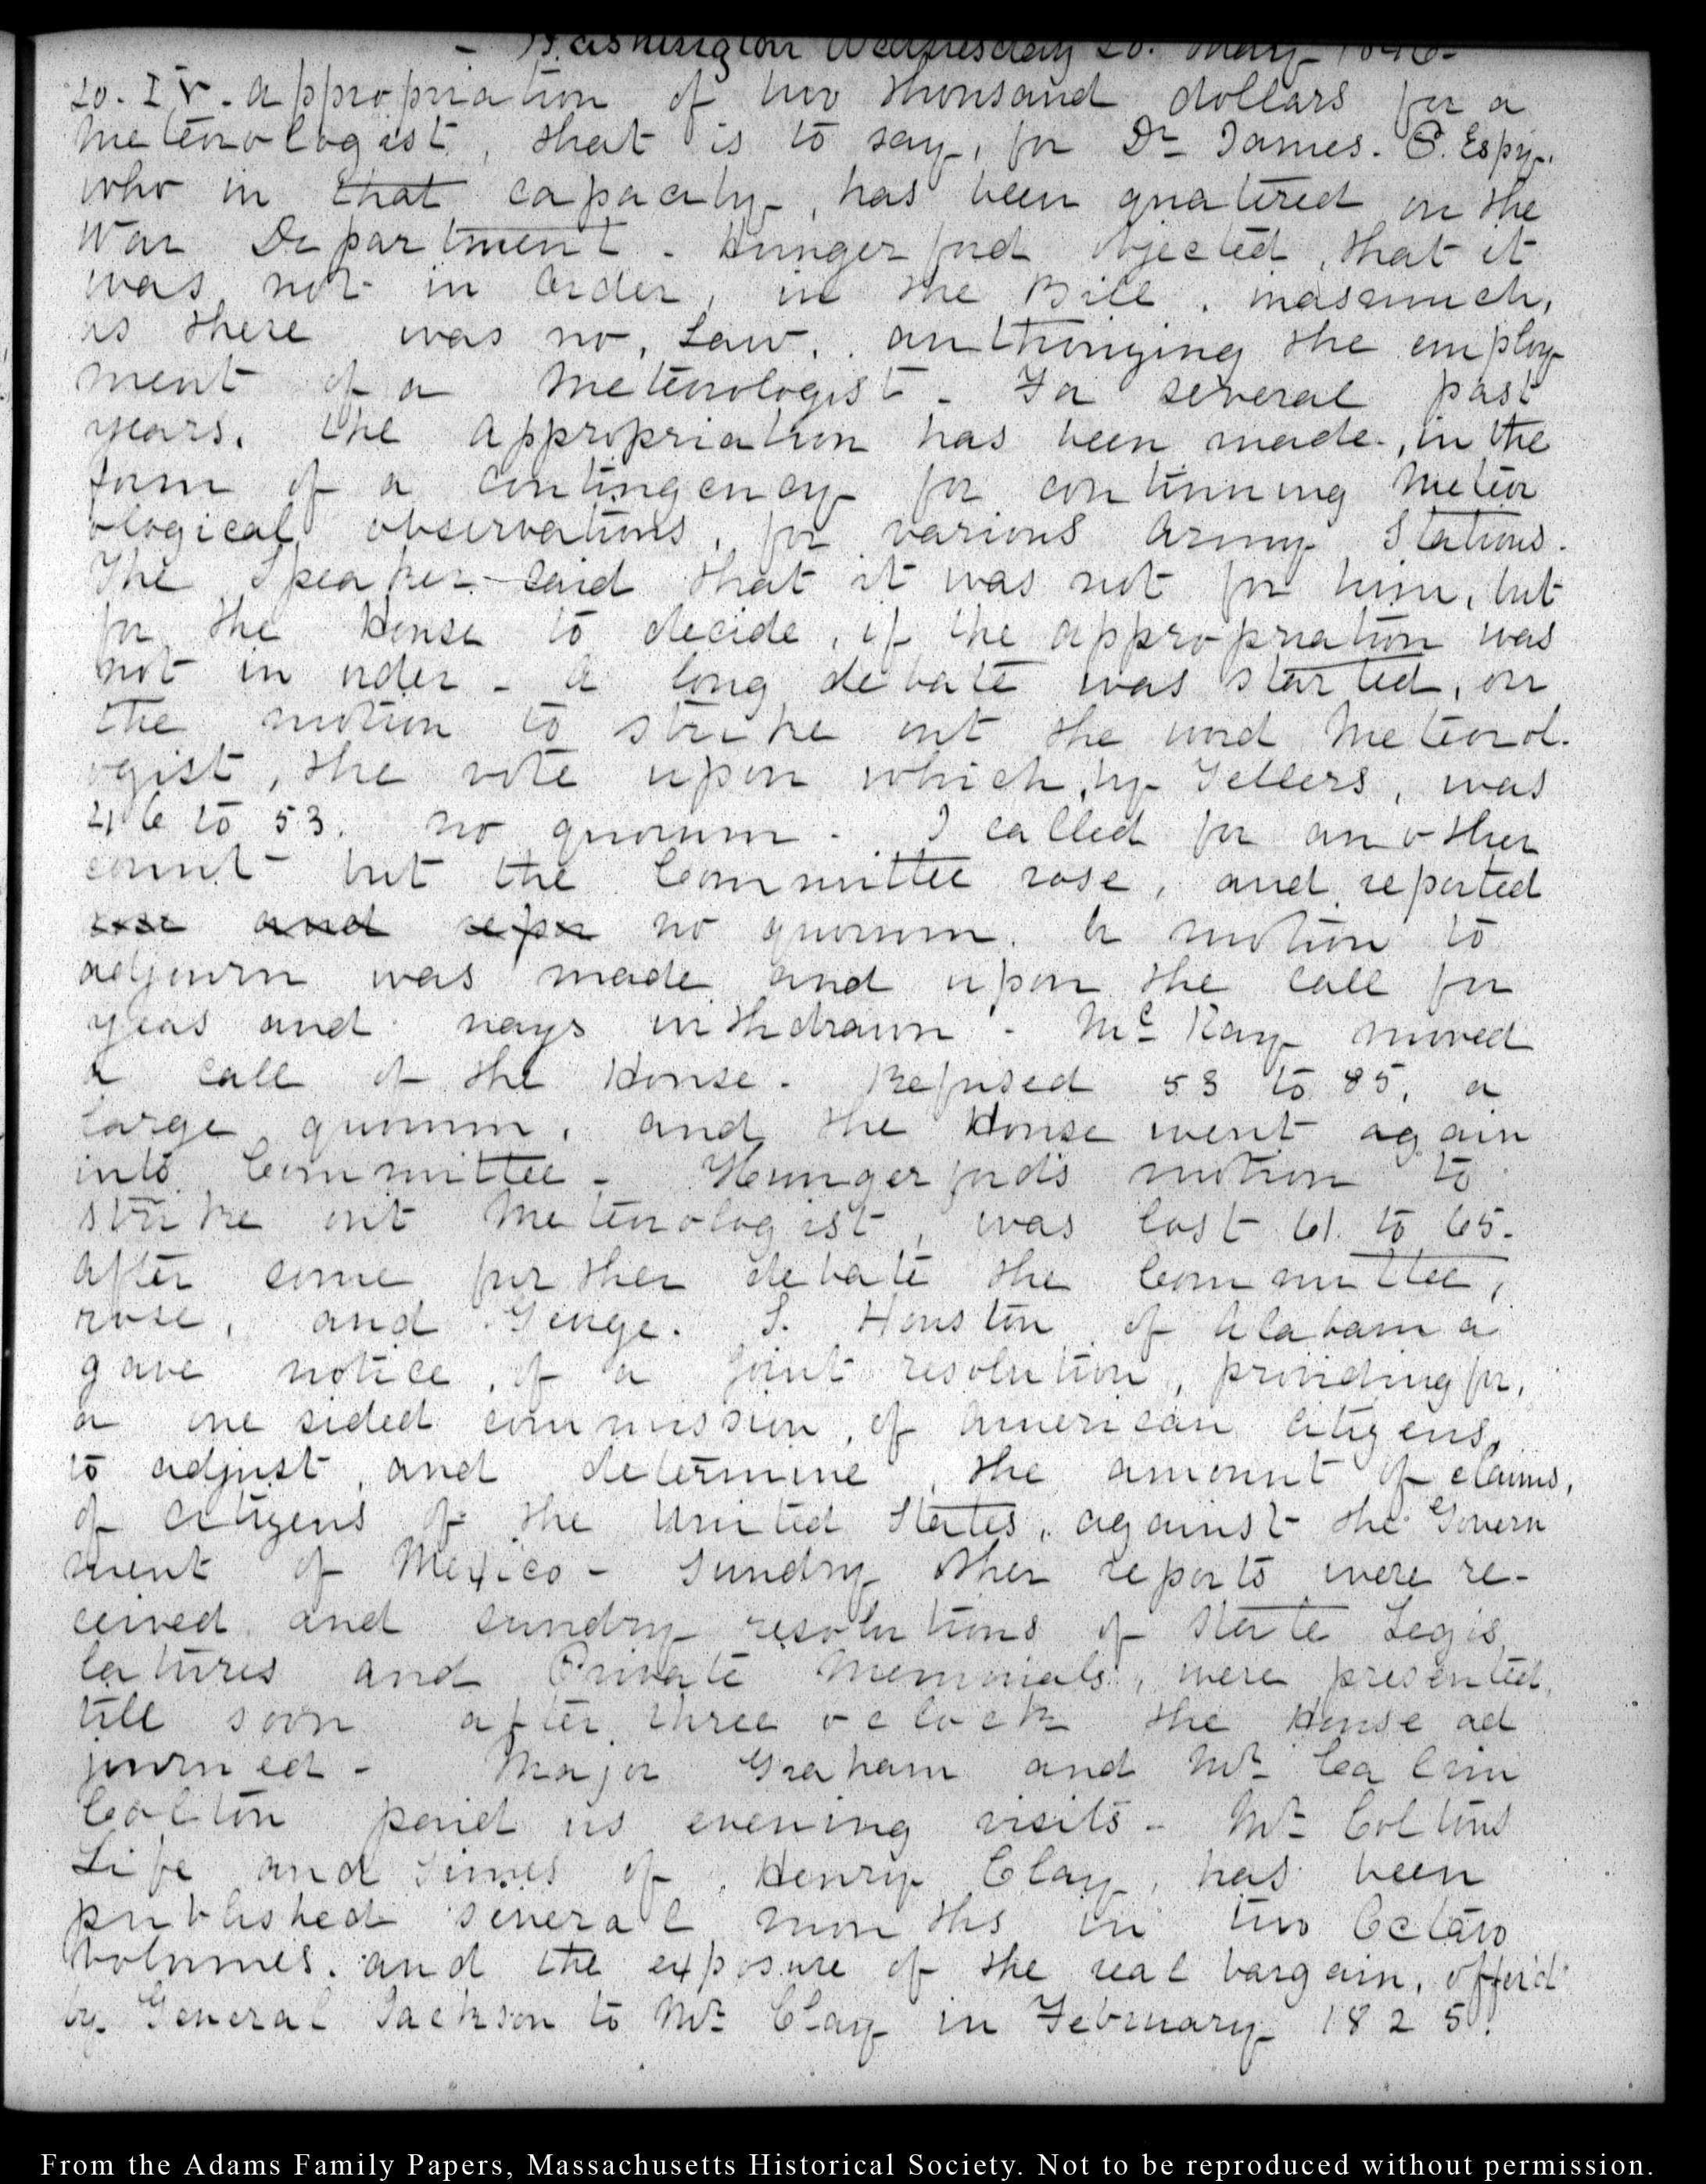 - Washington Wednesday 20. May 1846-
20. IV. appropriation of two thousand dollars for a
Meteorologist, that is to say, for Dr James. P. Espy.
who in that capacity, has been quatered on the
War Department - Hungerford objected, that it
was not in order, in the Bill, inasmuch,
as there was no, Law, authorizing the employ
ment of a Meteorologist - For several past
years, the appropriation has been made, in the
form of a contingency for continuing Meteor
ological observations, for various Army Stations.
The Speaker said that it was not for him, but
for the House to decide, if the appropriation was
not in order - A long debate was started, on
the motion to strike out the word Meteorol-
ogist, the vote upon which, by Tellers, was
46 to 53. no quorum - I called for another
count - but the Committee rose, and reported
rose and repor no quorum. A motion to
adjourn was made and upon the call for
yeas and nays withdrawn - McKay moved
a call of the House. Refused 53 to 85, a
large quorum, and the House went again
into Committee - Hungerfords motion to
strike out Meteorologist, was lost 61 to 65-
After some further debate the Committee,
rose, and George. S. Houston of Alabama
gave notice, of a joint resolution, providing for,
a one sided commission, of American citizens,
to adjust, and determine, the amount of claims,
of citizens of the United States, against the Govern
ment of Mexico - Sundry other reports were re-
ceived and sundry resolutions of State Legis
latures and Private Memorials, were presented,
till soon after three oclock the House ad
journed - Major Graham and Mr Calvin
Colton paid us evening visits - Mr Coltons
Life and Times of, Henry Clay, has been
published several months in two Octavo
Volumes. and the exposure of the real bargain, offer'd
by General Jackson to Mr Clay in February 1825.
From the Adams Family Papers, Massachusetts Historical Society. Not to be reproduced without permission.